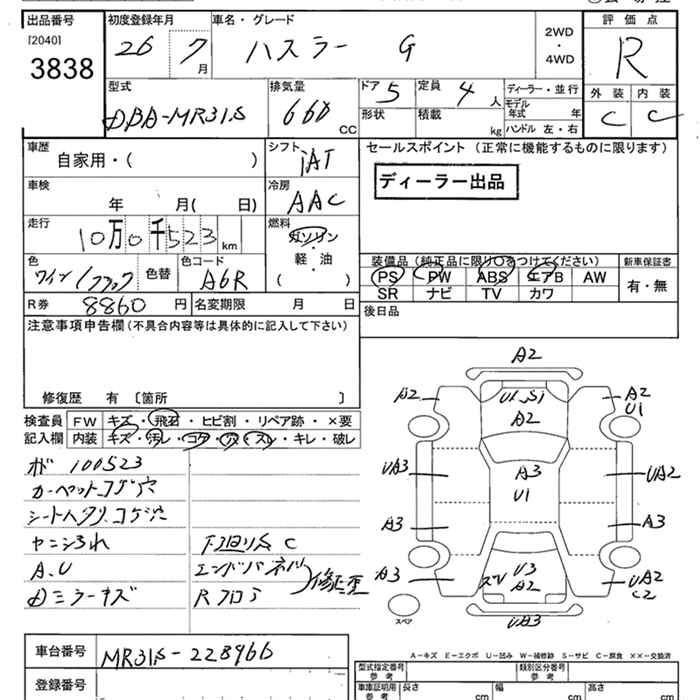 出品番号
[2040]
3838
初度登録年月
26 7 月
車名・グレード
ハスラー G
2WD
・
4WD
評価点
R
外装 内装
C C
型式
DBA-MR31S
排気量
660 CC
ドア 5
形状
定員 4 人
積載 kg
ディーラー・並行
モデル年式 年
ハンドル 左・右
車歴
自家用・( )
シフト
IAT
セールスポイント (正常に機能するものに限ります)
ディーラー出品
車検
年 月( 日)
冷房
AAC
走行
10万0千523 km
燃料
ガソリン
・
軽・油
( )
色
ワイン/ブラック
色替
色コード
A6R
装備品(純正品に限り○をつけてください)
PS PW ABS エアB AW
SR ナビ TV カワ
新車保証書
有・無
R券 8860 円
名変期限 月 日
後日品
注意事項申告欄(不具合内容等は具体的に記入して下さい)
修復歴 有 〔箇所 〕
検査員記入欄
FW キズ・飛石・ヒビ割・リペア跡・×要
内装 キズ・汚レ・コゲ・穴・スレ・キレ・破レ
100523
カーペットコゲ穴
シートヘタリ、コゲ穴
ヤニ汚れ
A.U
Dミラーキズ
下回りS C
エンドパネル
Rフロア
修正歴
A2
A2
U1.S1
A2
A2
U1
UA3
A3
U1
UA2
A3
A3
A3
U3
A2
UA2
C2
UA3
スペア
A−キズ E−エクボ U−凹み W−補修跡 S−サビ C−腐食 ××−交換済
車台番号 MR31S-228966
登録番号
型式指定番号
参考
類別区分番号
参考
車庫証明用
参考
長さ cm
幅 cm
高さ cm